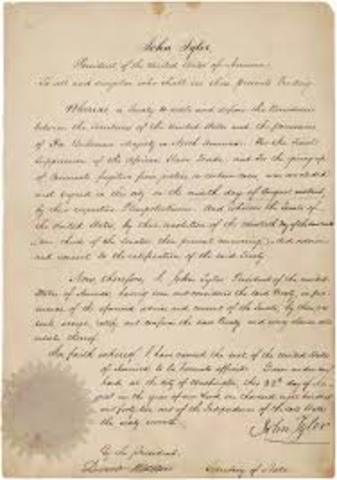 John Tyler
President of the United States of America
To all and singular who shall see these Presents Greeting
Whereas a Treaty to settle and define the Boundaries
between the territories of the United States and the possessions
of Her Britannic Majesty in North America: For the final
Suppression of the African Slave Trade; and For the giving up
of Criminals fugitive from justice in certain cases, was concluded
and signed in this city on the ninth day of August instant,
by their respective Plenipotentiaries. And whereas the Senate of
the United States, by their resolution of the twentieth day of
two thirds of the Senators then present concurring, did advise
and consent to the ratification of the said Treaty
Now therefore, I John Tyler President of the United
States of America, having seen and considered the said Treaty, in pur-
suance of the aforesaid advice and consent of the Senate, by these pre-
sents accept, ratify and confirm the said Treaty and every clause and
article thereof
In faith whereof, I have caused the seal of the United States
of America to be hereunto affixed. Given under my
hand at the city of Washington this 22d day of Au-
gust in the year of our Lord one thousand eight hundred
and forty two and of the Independence of the United States
the sixty seventh.
John Tyler
By the President.
Secretary of State